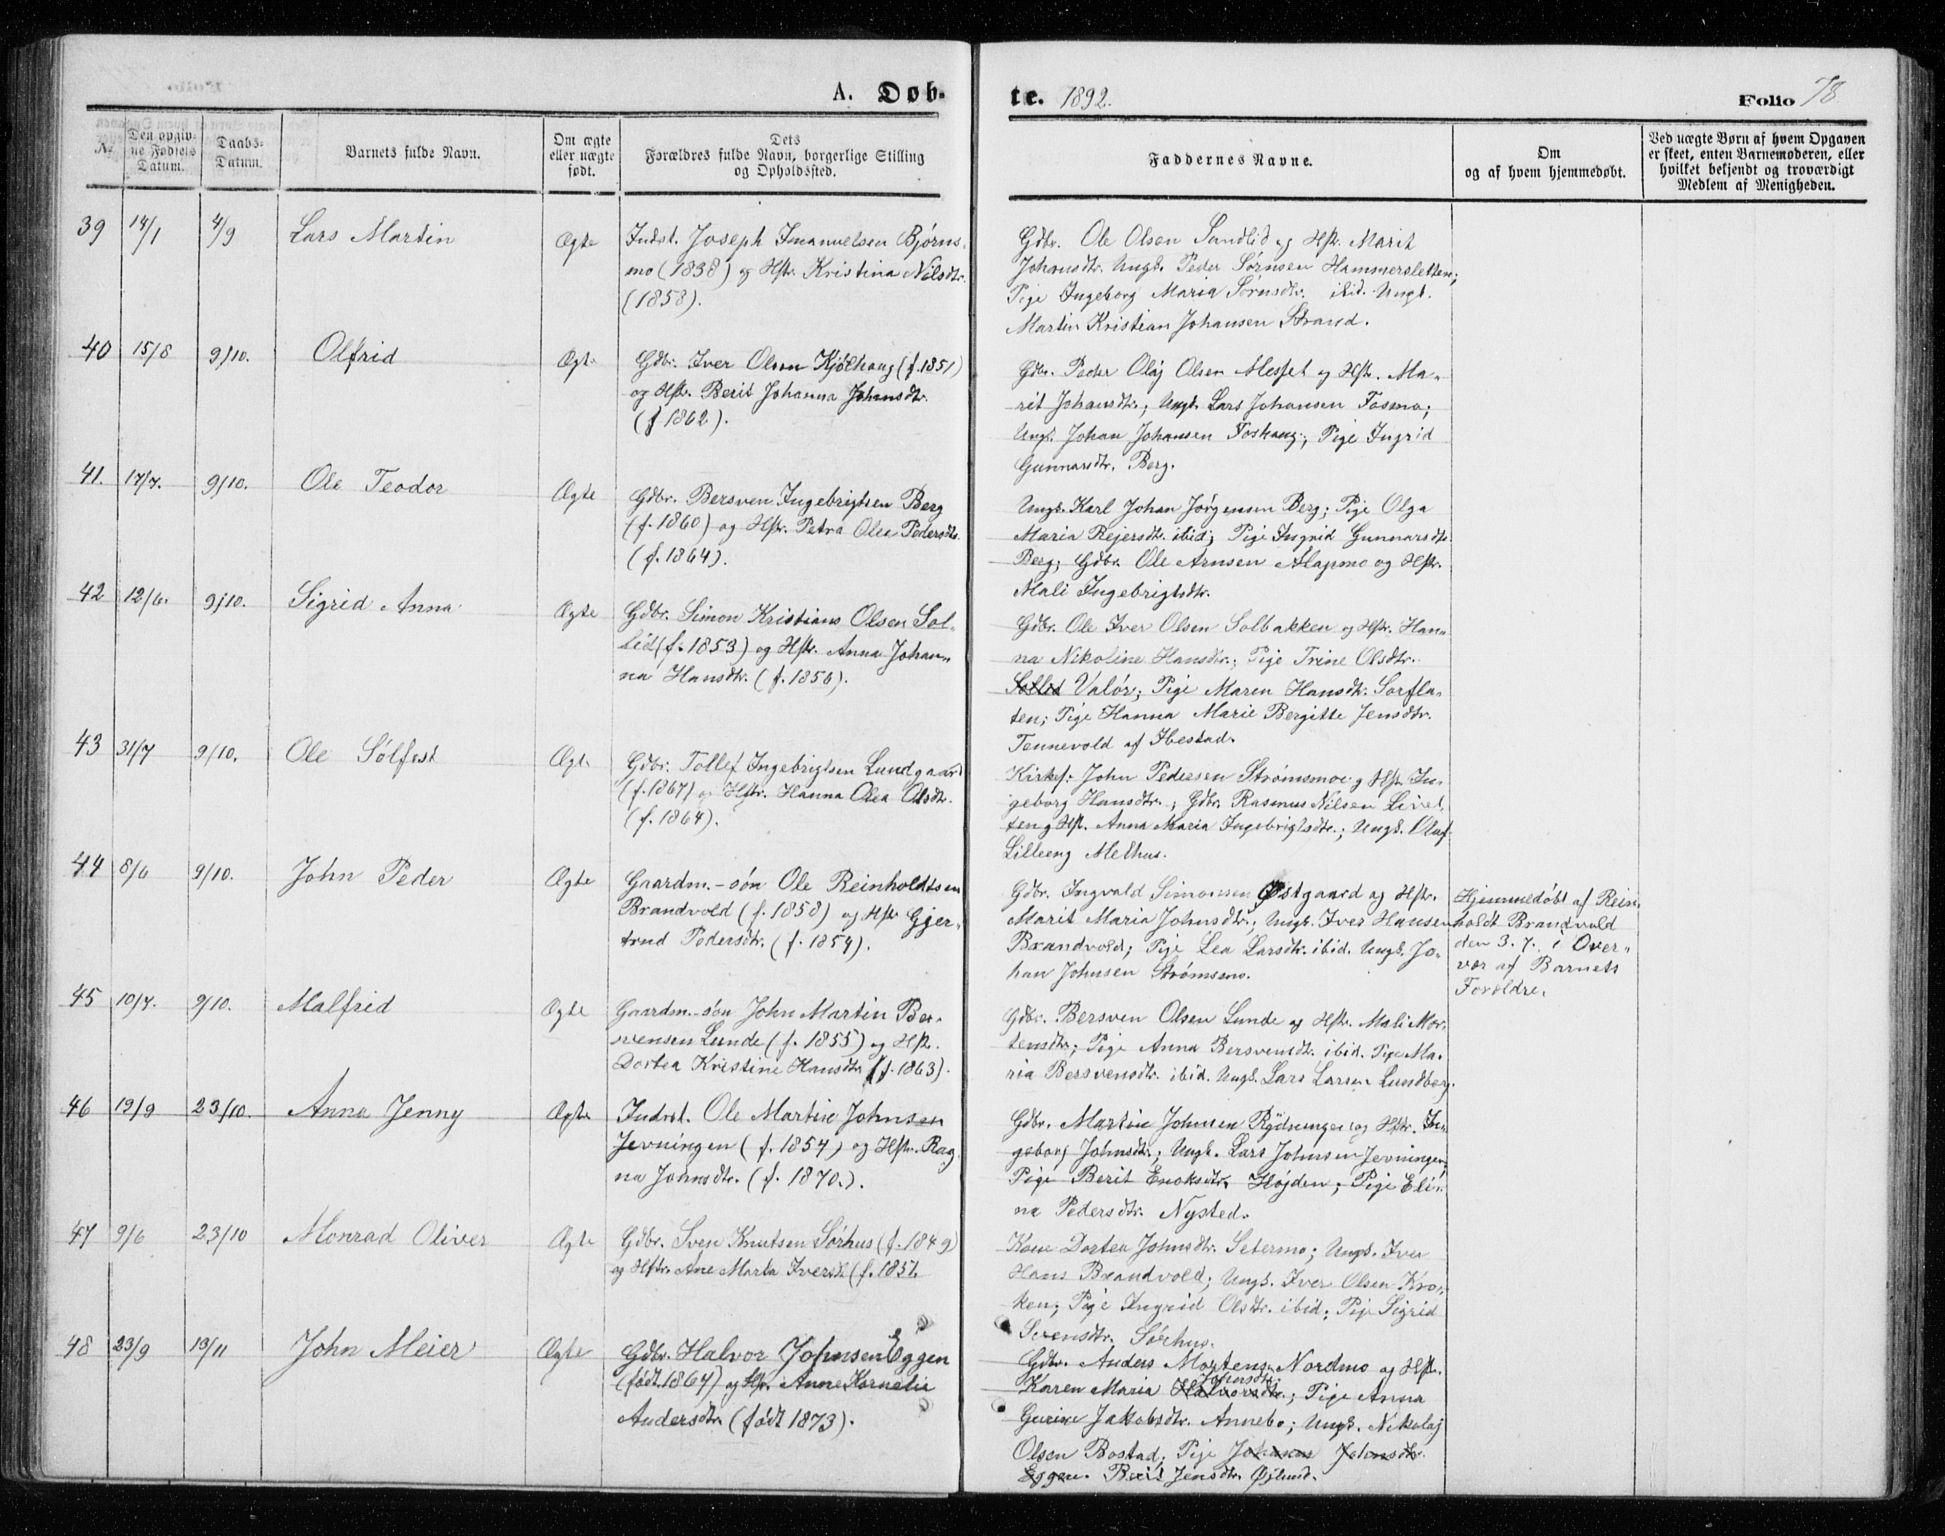 A. Døb-
te. 1892.
Folio 78
№
Den opgiv-
ne Fødsels
Datum.
Daabs-
Datum.
Barnets fulde Navn.
Om ægte
eller uægte
født.
Dets
Forældres fulde Navn, borgerlige Stilling
og Opholdssted.
Faddernes Navne.
Om
og af hvem hjemmedøbt.
Ved uægte Børn af hvem Opgaven
er skeet, enten Barnemoderen, eller
hvilket bekjendt og troværdigt
Medlem af Menigheden.
39 14/1 4/9 Lars Martin Ægte
Indst. Joseph Imanuelsen Bjørns-
mo (1838) og Hstr. Kristina Nilsdtr.
(1858).
Gdbr. Ole Olsen Sandlid og Hstr. Marit
Johansdtr. Ungk. Peder Sørnsen Hammersletten;
Pige Ingeborg Maria Sørnsdtr. ibid. Ungk.
Martin Kristian Johansen Strand.
40 15/8 9/10. Olfrid Ægte
Gdbr. Iver Olsen Kjølhaug (f. 1851)
og Hstr. Berit Johanna Johnsdtr.
(f 1862).
Gdbr. Peder Olaj Olsen Messet og Hstr. Ma-
rit Johansdtr.; Ungk. Lars Johansen Fosmo;
Ungk. Johan Johansen Foshaug; Pige Ingrid
Gunnarsdtr. Berg.
41. 17/7. 9/10. Ole Teodor Ægte
Gdbr. Bersven Ingebrigtsen Berg
(f. 1860) og Hstr. Petra Olea Pedersdtr.
(f. 1864).
Ungk. Karl Johan Jørgensen Berg; Pige Olga
Maria Rejersdtr. ibid; Pige Ingrid Gunnarsdtr.
Berg; Gdbr. Ole Arnsen Alapmo og Hstr.
Mali Ingebrigtsdtr.
42 12/6. 9/10. Sigrid Anna Ægte
Gdbr. Simon Kristians Olsen Sol-
lid (f. 1853) og Hstr. Anna Johan-
na Hansdtr. (f. 1856).
Gdbr. Ole Iver Olsen Solbakken og Hstr. Han-
na Nikoline Hansdtr.; Pige Trine Olsdtr.
Sollid Valör; Pige Maren Hansdtr. Sørfla-
ten; Pige Hanna Marie Bergitte Jensdtr.
Tennevold af Ibestad.
43 31/7 9/10. Ole Sølfest Ægte
Gdbr. Tollef Ingebrigtsen Lundgaard
(f. 1867) og Hstr. Hanna Olea Olsdtr.
(f. 1864).
Kirkes: John Pedersen Strømsmo og Hstr. In-
geborg Hansdtr.; Gdbr. Rasmus Nilsen
Hst. Anna Maria Ingebrigtsdtr.; Ungk. Oluf
Lilleeng Melhus.
44 8/6 9/10. John Peder Ægte
Gaardm.-søn Ole Reinholdtsen
Brandvold (f. 1858) og Hstr Gjer-
trud Pedersdtr. (f. 1854).
Gdbr. Ingvald Simonsen Østgaard og Hstr.
Marit Maria Johnsdtr; Ungk. Iver Hansen
Brandvold; Pige Lea Larsdtr. ibid. Ungk. Jo-
han Johnsen Strømsmo.
Hjemmedøbt af Rein-
holdt Brandvold
den 3. 7. i Over-
vær af Barnets
Forældre.
45 10/7. 9/10. Malfrid Ægte
Gaardm.-søn John Martin Ber-
svensen Lunde (f. 1855) og Hst.
Dortea Kristine Hansdtr (f. 1863).
Gdbr. Bersven Olsen Lunde og Hstr. Mali Mor-
tensdtr; Pige Anna Bersvensdtr. ibid. Pige Ma-
ria Bersvensdtr. ibid. Ungk. Lars Larsen Lundberg.
46 19/9 23/10. Anna Jenny Ægte
Indst. Ole Martin Johnsen
Jevningen (f. 1854) og Hstr. Rag
na Johnsdtr. (f. 1870.).
Gdbr. Martin Johnsen Rydningen og Hstr. In-
geborg Johnsdtr; Ungk. Lars Johnsen Jevningen;
Pige Berit Enoksdtr. Højden; Pige Eli-
na Pedersdtr. Nysted.
47 9/6 23/10 Monrad Oliver Ægte
Gdbr. Sven Knutsen Sørhus (f. 1849)
og Hstr. Ane Marta Iversdt. (f. 1857.
Kone Dortea Johnsdtr. Setermo; Ungk. Iver
Hans Brandvold; Ungk. Iver Olsen Kro-
ken; Pige Ingrid Olsdtr. ibid; Pige Sigrid
Svensdtr. Sørhus.
48 23/9 13/11 John Meier Ægte
Gdbr. Halvor Johnsen Eggen
(født 1864) og Hstr. Anne Kornelie
Andersdtr. (født 1873).
Gdbr. Anders Mortens. Nordmo og Hst.
Johnsdtr.
Karen Maria Halvorsdtr.; Pige Anna
Gurine Jakobsdtr. Annebo; Ungk. Nikolaj
Olsen Bostad. Pige Johanna Johnsdtr.
Eggen. Berit Jensdtr. Øjlund.